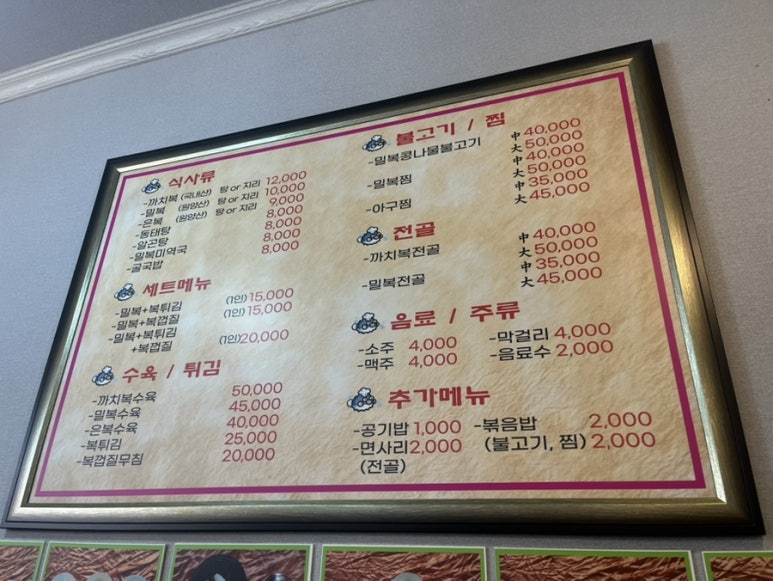 식사류
-까치복 (국내산) 탕 or 지리 12,000
-밀복 (원양산) 탕 or 지리 10,000
-은복 (원양산) 탕 or 지리 9,000
-동태탕 8,000
-알곤탕 8,000
-밀복미역국 8,000
-굴국밥 8,000
세트메뉴
-밀복+복튀김 (1인) 15,000
-밀복+복껍질 (1인) 15,000
-밀복+복튀김
+복껍질 (1인) 20,000
수육 / 튀김
-까치복수육 50,000
-밀복수육 45,000
-은복수육 40,000
-복튀김 25,000
-복껍질무침 20,000
불고기 / 찜
-밀복콩나물불고기 中 40,000
大 50,000
-밀복찜 中 40,000
大 50,000
-아구찜 中 35,000
大 45,000
전골
-까치복전골 中 40,000
大 50,000
-밀복전골 中 35,000
大 45,000
음료 / 주류
-소주 4,000 -막걸리 4,000
-맥주 4,000 -음료수 2,000
추가메뉴
-공기밥 1,000 -볶음밥 2,000
-면사리 2,000 (불고기, 찜) 2,000
(전골)